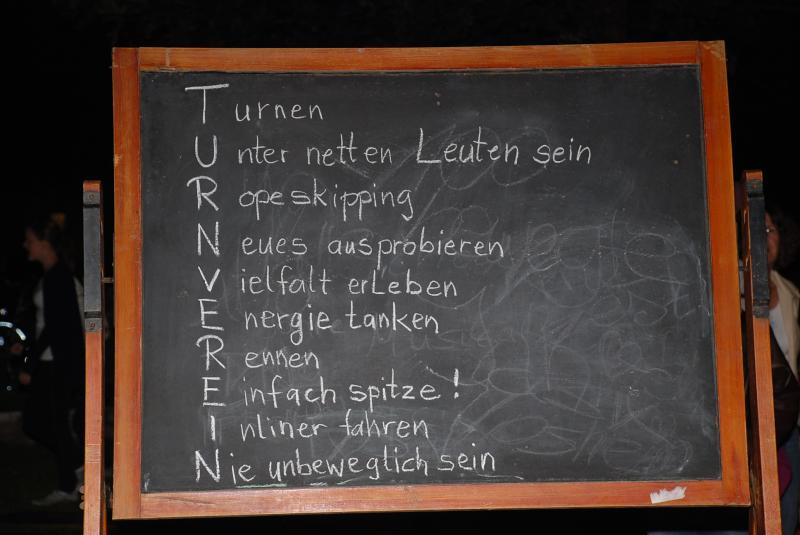 Turnen
Unter netten Leuten sein
Ropeskipping
Neues ausprobieren
Vielfalt erLeben
Energie tanken
Rennen
Einfach spitze!
Inliner fahren
Nie unbeweglich sein